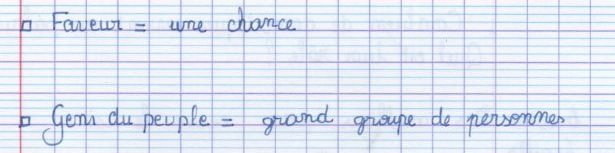 □ Faveur = une chance
□ Gens du peuple = grand groupe de personnes